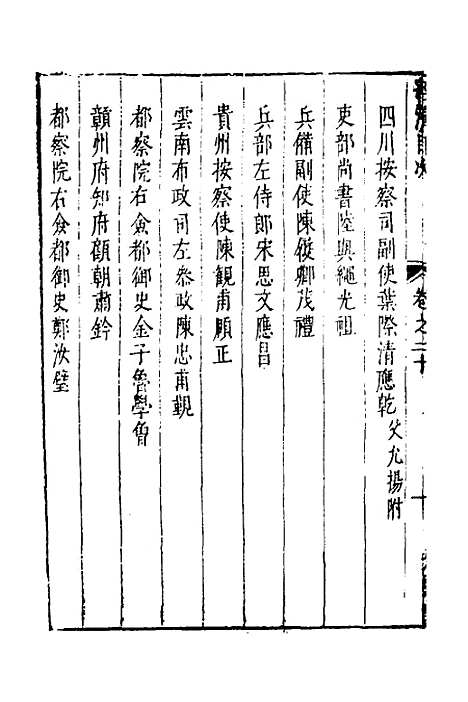 四川按察司副使葉際清應乾父允揚附
吏部尚書陸與繩光祖
兵備副使陳俊卿茂禮
兵部左侍郎宋思文應昌
貴州按察使陳觀甫順正
雲南布政司左參政陳忠甫觀
都察院右僉都御史金子魯學曾
贛州府知府顧朝肅鈐
都察院右僉都御史鄭汝璧
卷之二十